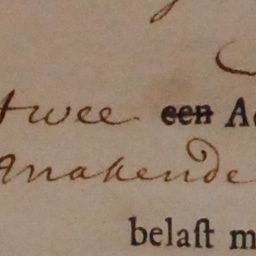 twee een A
makende
belaſt m